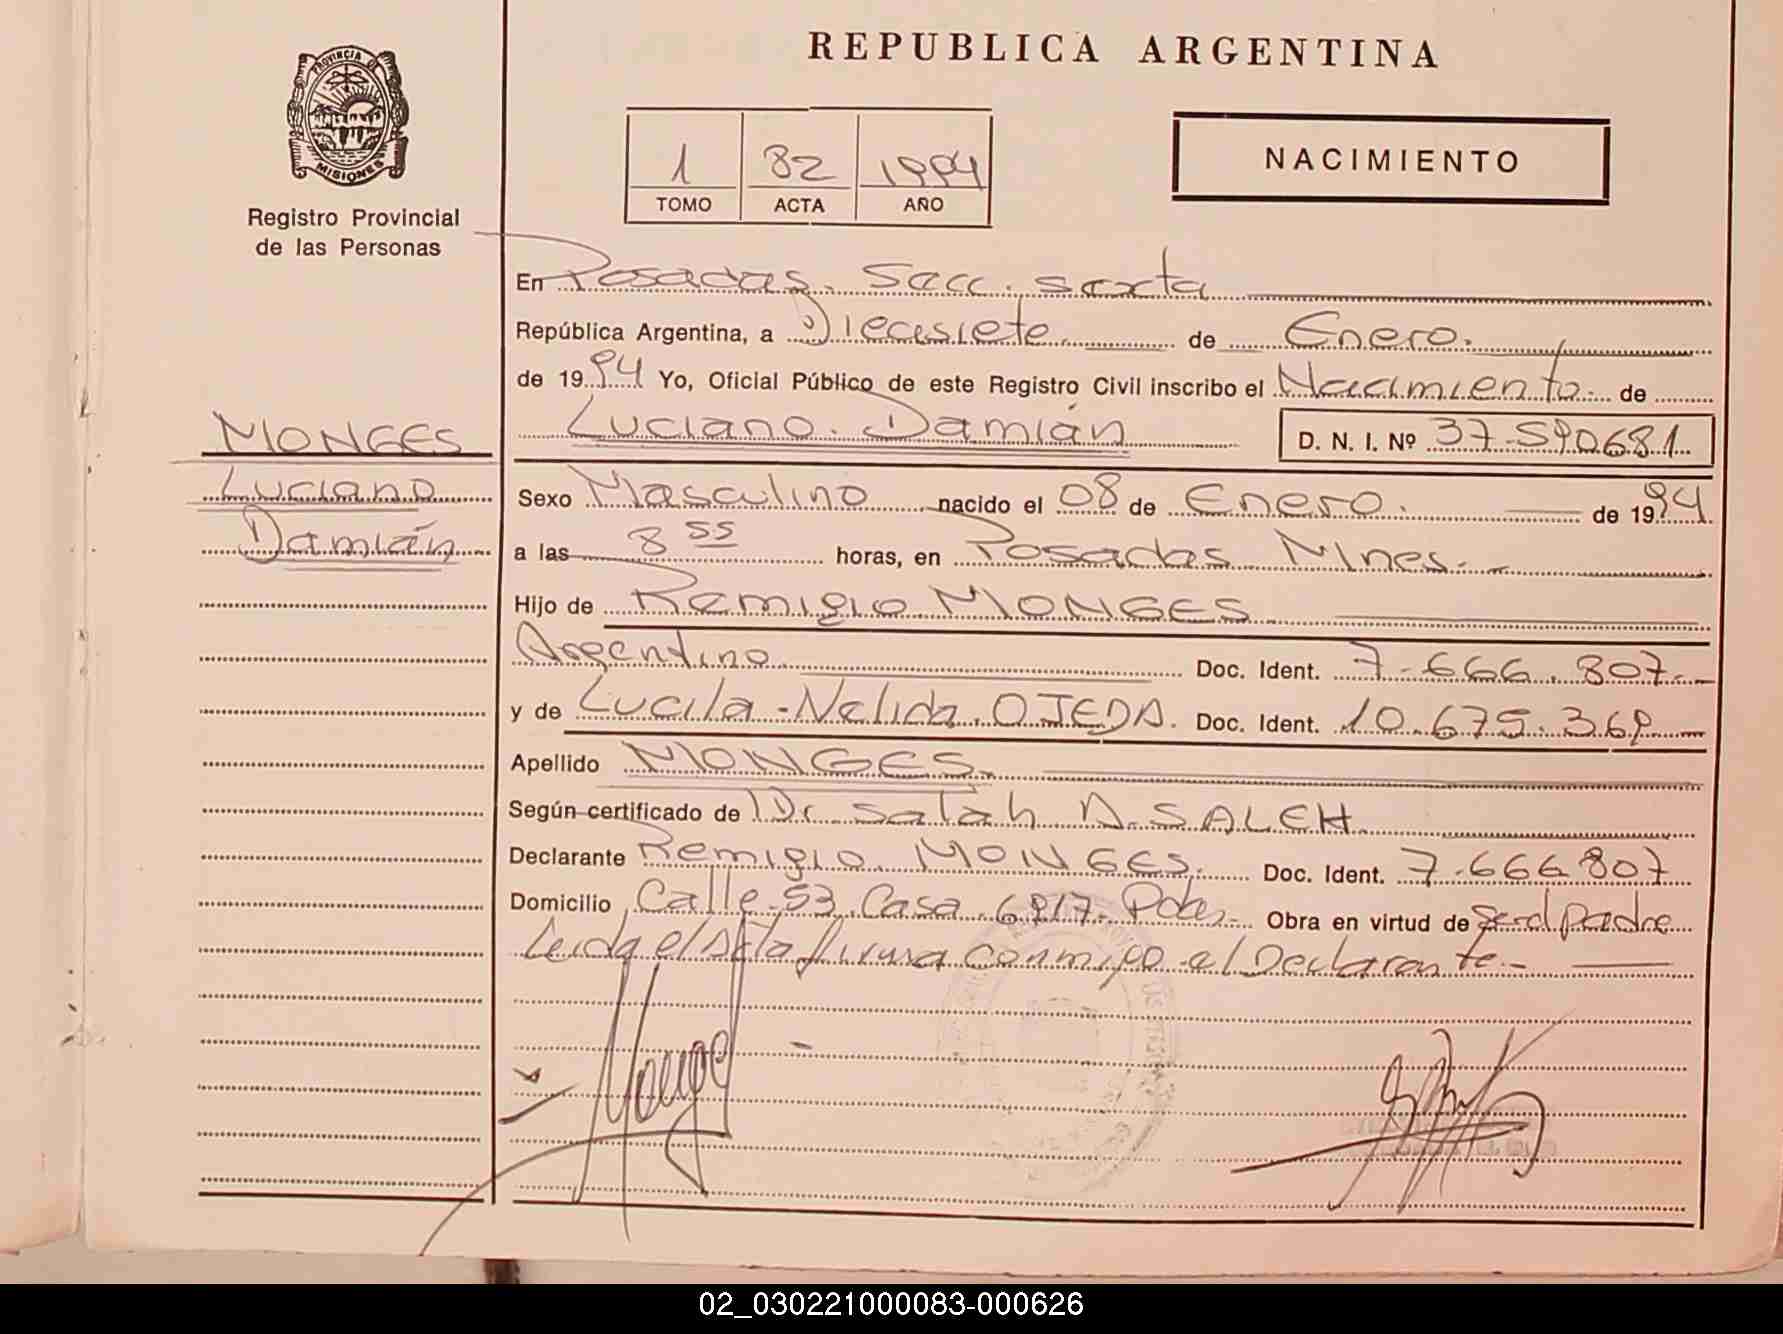 REPUBLICA ARGENTINA
PROVINCIA DE
MISIONES
Registro Provincial
de las Personas
1 82 1994
TOMO ACTA AÑO
NACIMIENTO
En Posadas. Secc. sexta
República Argentina, a Diecisiete de Enero.
de 1994 Yo, Oficial Público de este Registro Civil inscribo el Nacimiento de
Luciano. Damián D. N. I. Nº 37-590681
MONGES
Luciano
Damián
Sexo Masculino nacido el 08 de Enero. de 1994
a las 8 55 horas, en Posadas Mnes.
Hijo de Remigio MONGES
Argentino Doc. Ident. 7-666.807
y de Lucila-Nelida. OJEDA. Doc. Ident. 10.675.369
Apellido MONGES
Según certificado de Dr. Salah A. SALEH
Declarante Remigio. MONGES. Doc. Ident. 7.666807
Domicilio Calle 53 Casa 6917- Pdas- Obra en virtud de Ser el padre
Leida el Acta firma conmigo el Declarante.-
02_030221000083-000626